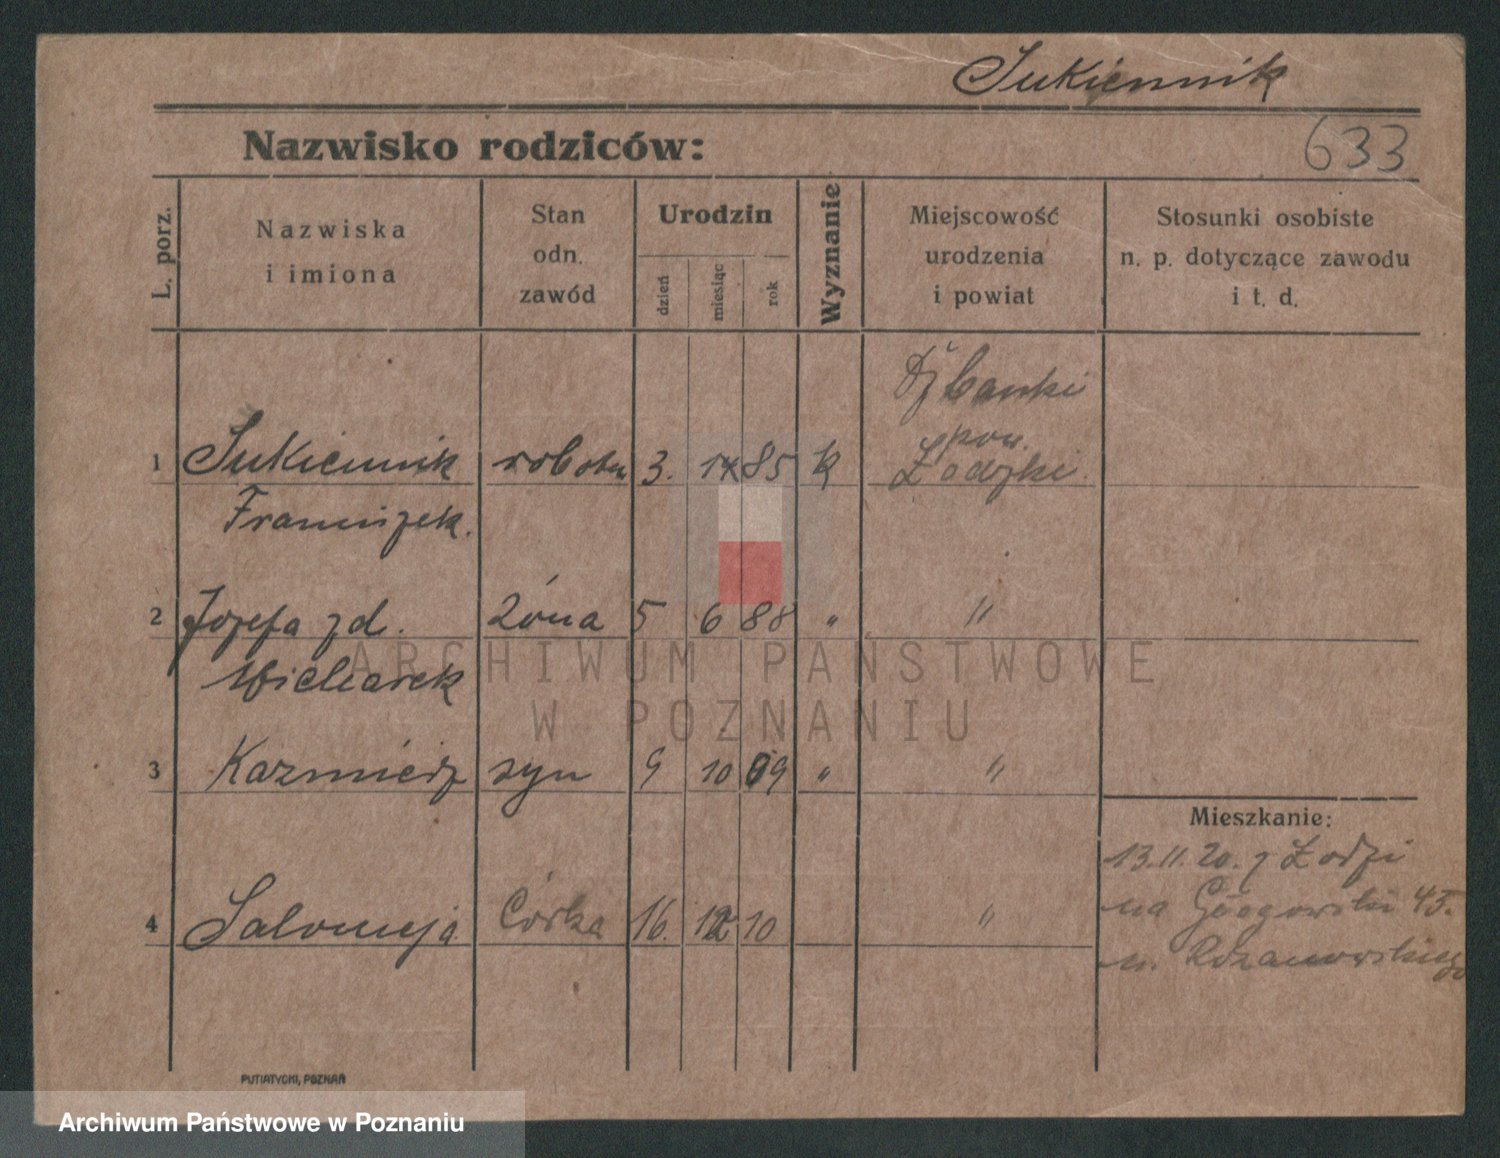 Sukiennik
Nazwisko rodziców:
633
L. porz.
Nazwiska
i imiona
Stan
odn.
zawód
Urodzin
dzień
miesiąc
rok
Wyznanie
Miejscowość
urodzenia
i powiat
Stosunki osobiste
n. p. dotyczące zawodu
i t. d.
pow.
1 Sukiennik robotn 3. 85 k
Franciszek.
2 Józefa zd. żóna 5 6 88 " "
ARCHIWUM PAŃSTWOWE
W POZNANIU
3 Kazmierz syn 9 10 09 " "
Mieszkanie:
13.11.20. z Łodzi
na 45.
4 Salomeja Córka 16. 12 10 "
PUTIATYCKI, POZNAŃ
Archiwum Państwowe w Poznaniu